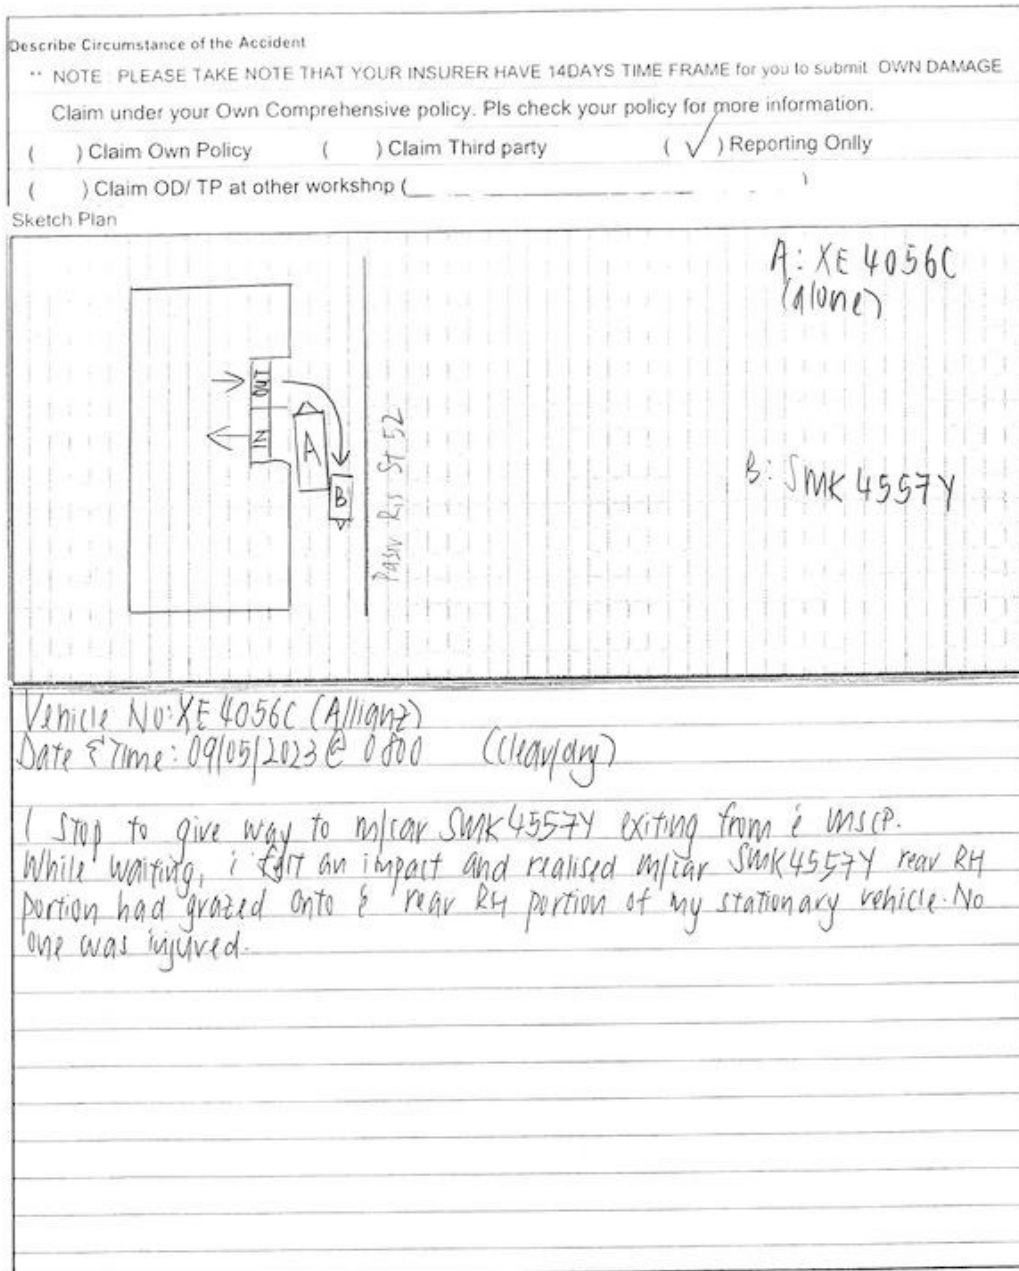 Describe Circumstance of the Accident
** NOTE : PLEASE TAKE NOTE THAT YOUR INSURER HAVE 14DAYS TIME FRAME for you to submit OWN DAMAGE
Claim under your Own Comprehensive policy. Pls check your policy for more information.
( ) Claim Own Policy ( ) Claim Third party ( ✓ ) Reporting Onlly
( ) Claim OD/ TP at other workshop (_______________)
Sketch Plan
A: XE 4056C
(alone)
OUT
IN
A
B
Pasir Ris St 52
B: SMK 4557Y
Vehicle No: XE 4056C (Allianz)
Date & Time: 09/05/2023 @ 0800 (clear/dry)
I stop to give way to m/car SMK4557Y exiting from è mscp.
While waiting, i felt an impact and realised m/car SMK4557Y rear RH
portion had grazed onto è rear RH portion of my stationary vehicle. No
one was injured.